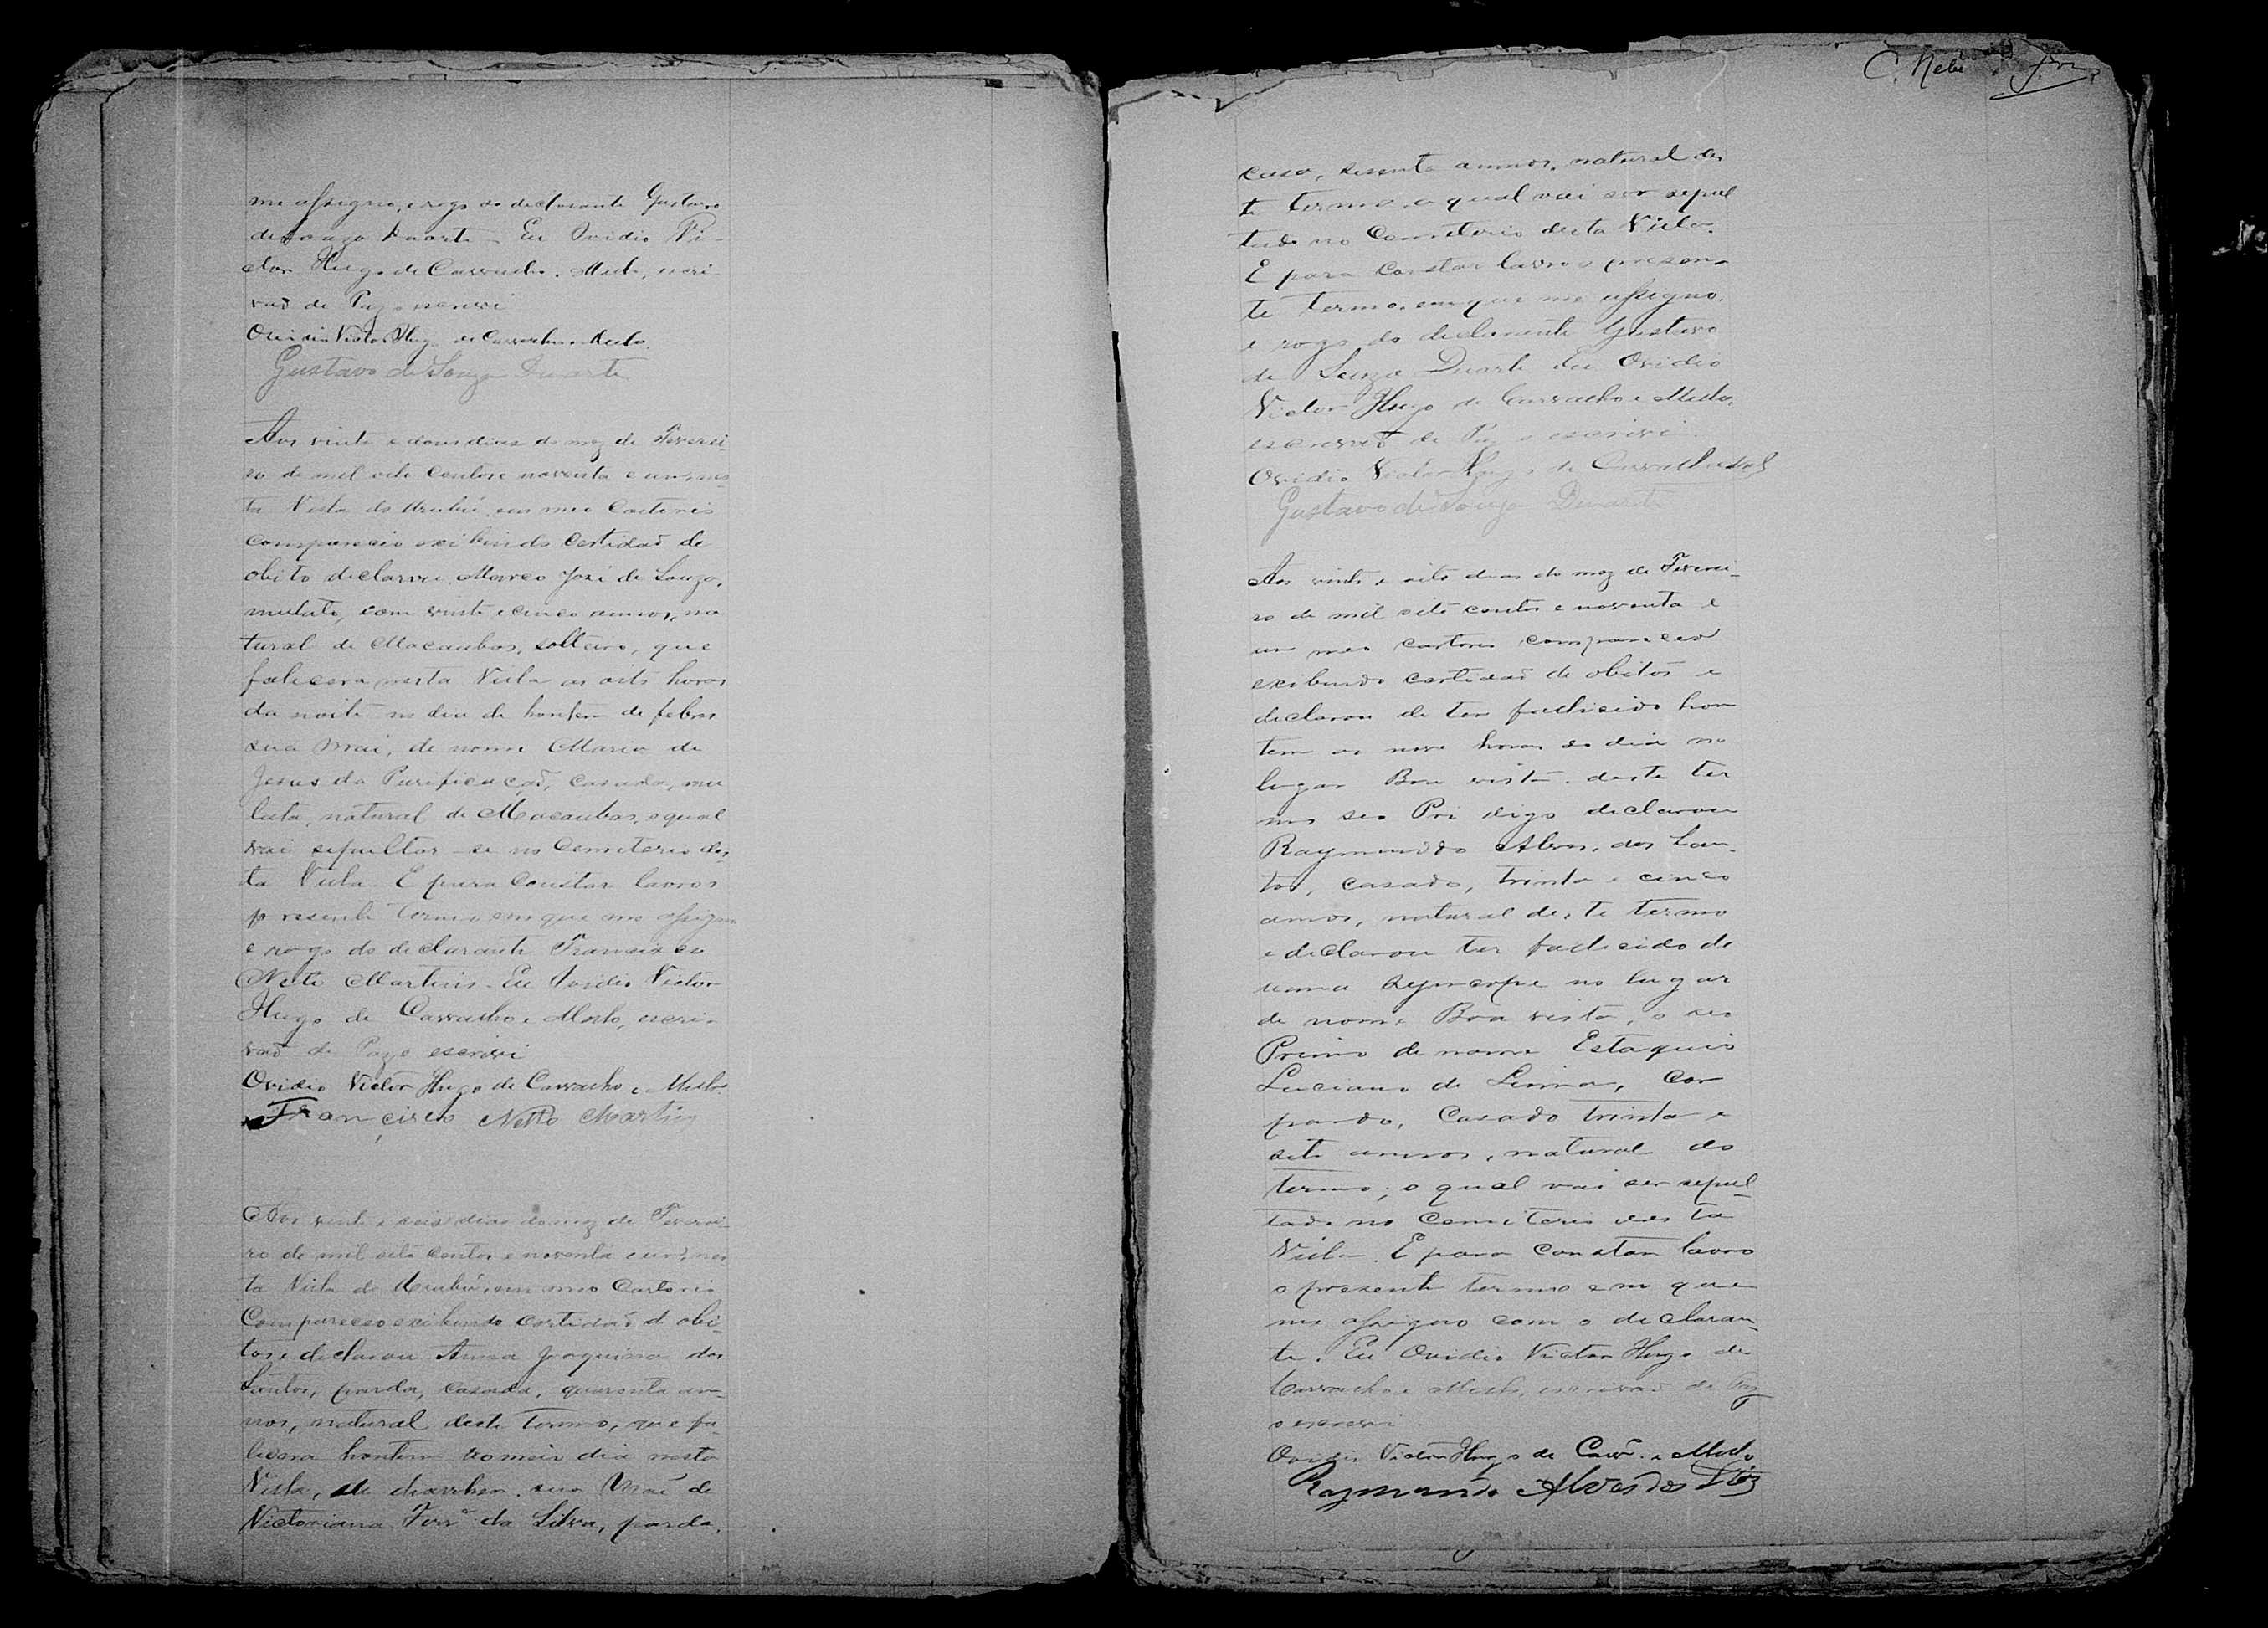 me assigno, e rogo do declarante Gustavo
de Souza Duarte. Eu Ovidio Vi-
ctor Hugo de Carvalho e Mello, escri-
vaõ de Paz o escrivi
Ovidio Victor Hugo de Carvalho e Mello
Gustavo de Souza Duarte
Aos vinte e dous dias do mez de Feverei-
ro de mil oito centos e noventa e um, nes-
ta Villa do Urubú, em meo Cartorio
compareceo exibindo Certidaõ de
obito declarou Marco José de Souza,
mulato, com vinte e cinco annos, na
tural de Macaubas, solteiro, que
falecera nesta Villa as oito horas
da noite no dia de hontem de febres
sua Mai, de nome Maria de
Jesus da Purificaçaõ, casada, mu
lata, natural de Macaubas, o qual
vai sepultar-se no Cemiterio des-
ta Villa. E para Constar lavro o
presente termo em que me assigno
e rogo do declarante Francisco
Netto Martins. Eu Ovidio Victor
Hugo de Carvalho e Mello, escri-
vaõ de Paz o escrivi
Ovidio Victor Hugo de Carvalho e Mello
Francisco Netto Martins
Aos vinte e seis dias do mez de Feverei-
ro de mil oito centos e noventa e um, nes
ta Villa do Urubú, em meo Cartorio
Compareceo exibindo Certidaõ d obi-
tos e declarou Anna Joaquina dos
Santos, parda, casada, quarenta an-
nos, natural deste Termo, que fa-
lecera hontem ao meio dia nesta
Villa, de diarrhea, sua Mai de
Victoriana Ferrª da Silva, parda,
C. Neb
casa, sesenta annos, natural des
te termo, o qual vai ser sepul
tado no Cemiterio desta Villa.
E para Constar lavro o presen-
te termo, em que me assigno
e rogo do declarante Gustavo
de Souza Duarte Eu Ovidio
Victor Hugo de Carvalho e Mello,
escrivaõ de Paz o escrivi.
Ovidio Victor Hugo de Carvalho
Gustavo de Souza Duarte
Aos vinte e oito dias do mez de Feverei-
ro de mil oito centos e noventa e
um meo cartorio compareceo
exibindo certidaõ de obitos e
declarou de ter fallecido hon
tem as nove horas do dia no
lugar Boa vista, deste ter
mo seo Pri digo declarou
Raymundo Alves dos San-
tos, casado, trinta e cinco
annos, natural deste termo
e declarou ter fallecido de
uma syncope no lugar
de nome Boa vista, o seo
Primo de nome Estaquio
Luciano de Lima, cor
parda, Casado trinta e
sete annos, natural do
termo, o qual vai ser sepul-
tado no Cemiterio desta
Villa. E para constar lavro
o presente termo em que
me assigno com o declaran-
te. Eu Ovidio Victor Hugo de
Carvalho e Mello, escrivaõ de Paz
o escrevi.
Ovidio Victor Hugo de Carvº e Mello
Raymundo Alves dos Stos